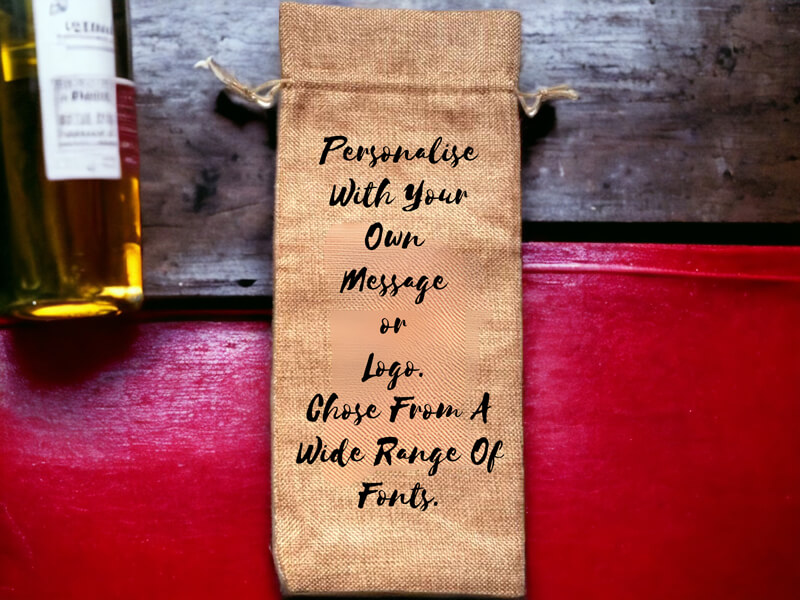 Personalise
With Your
Own
Message
or
Logo.
Chose From A
Wide Range Of
Fonts.